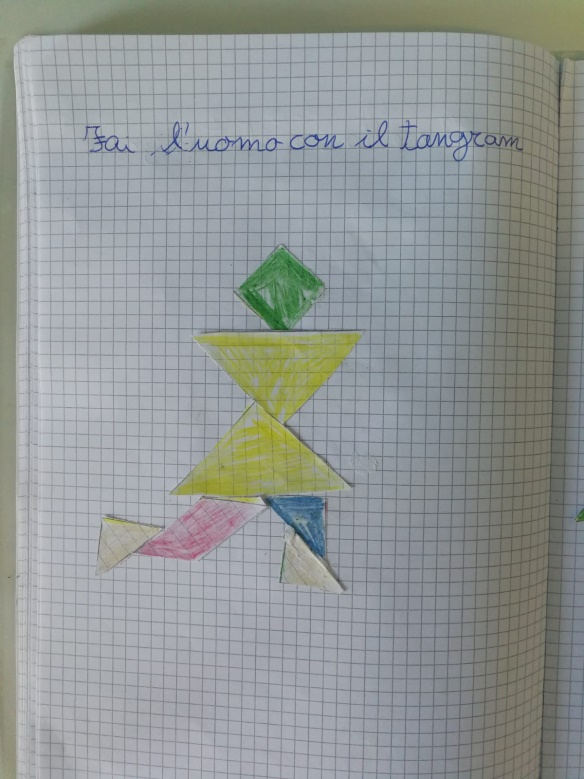 Fai l'uomo con il tangram